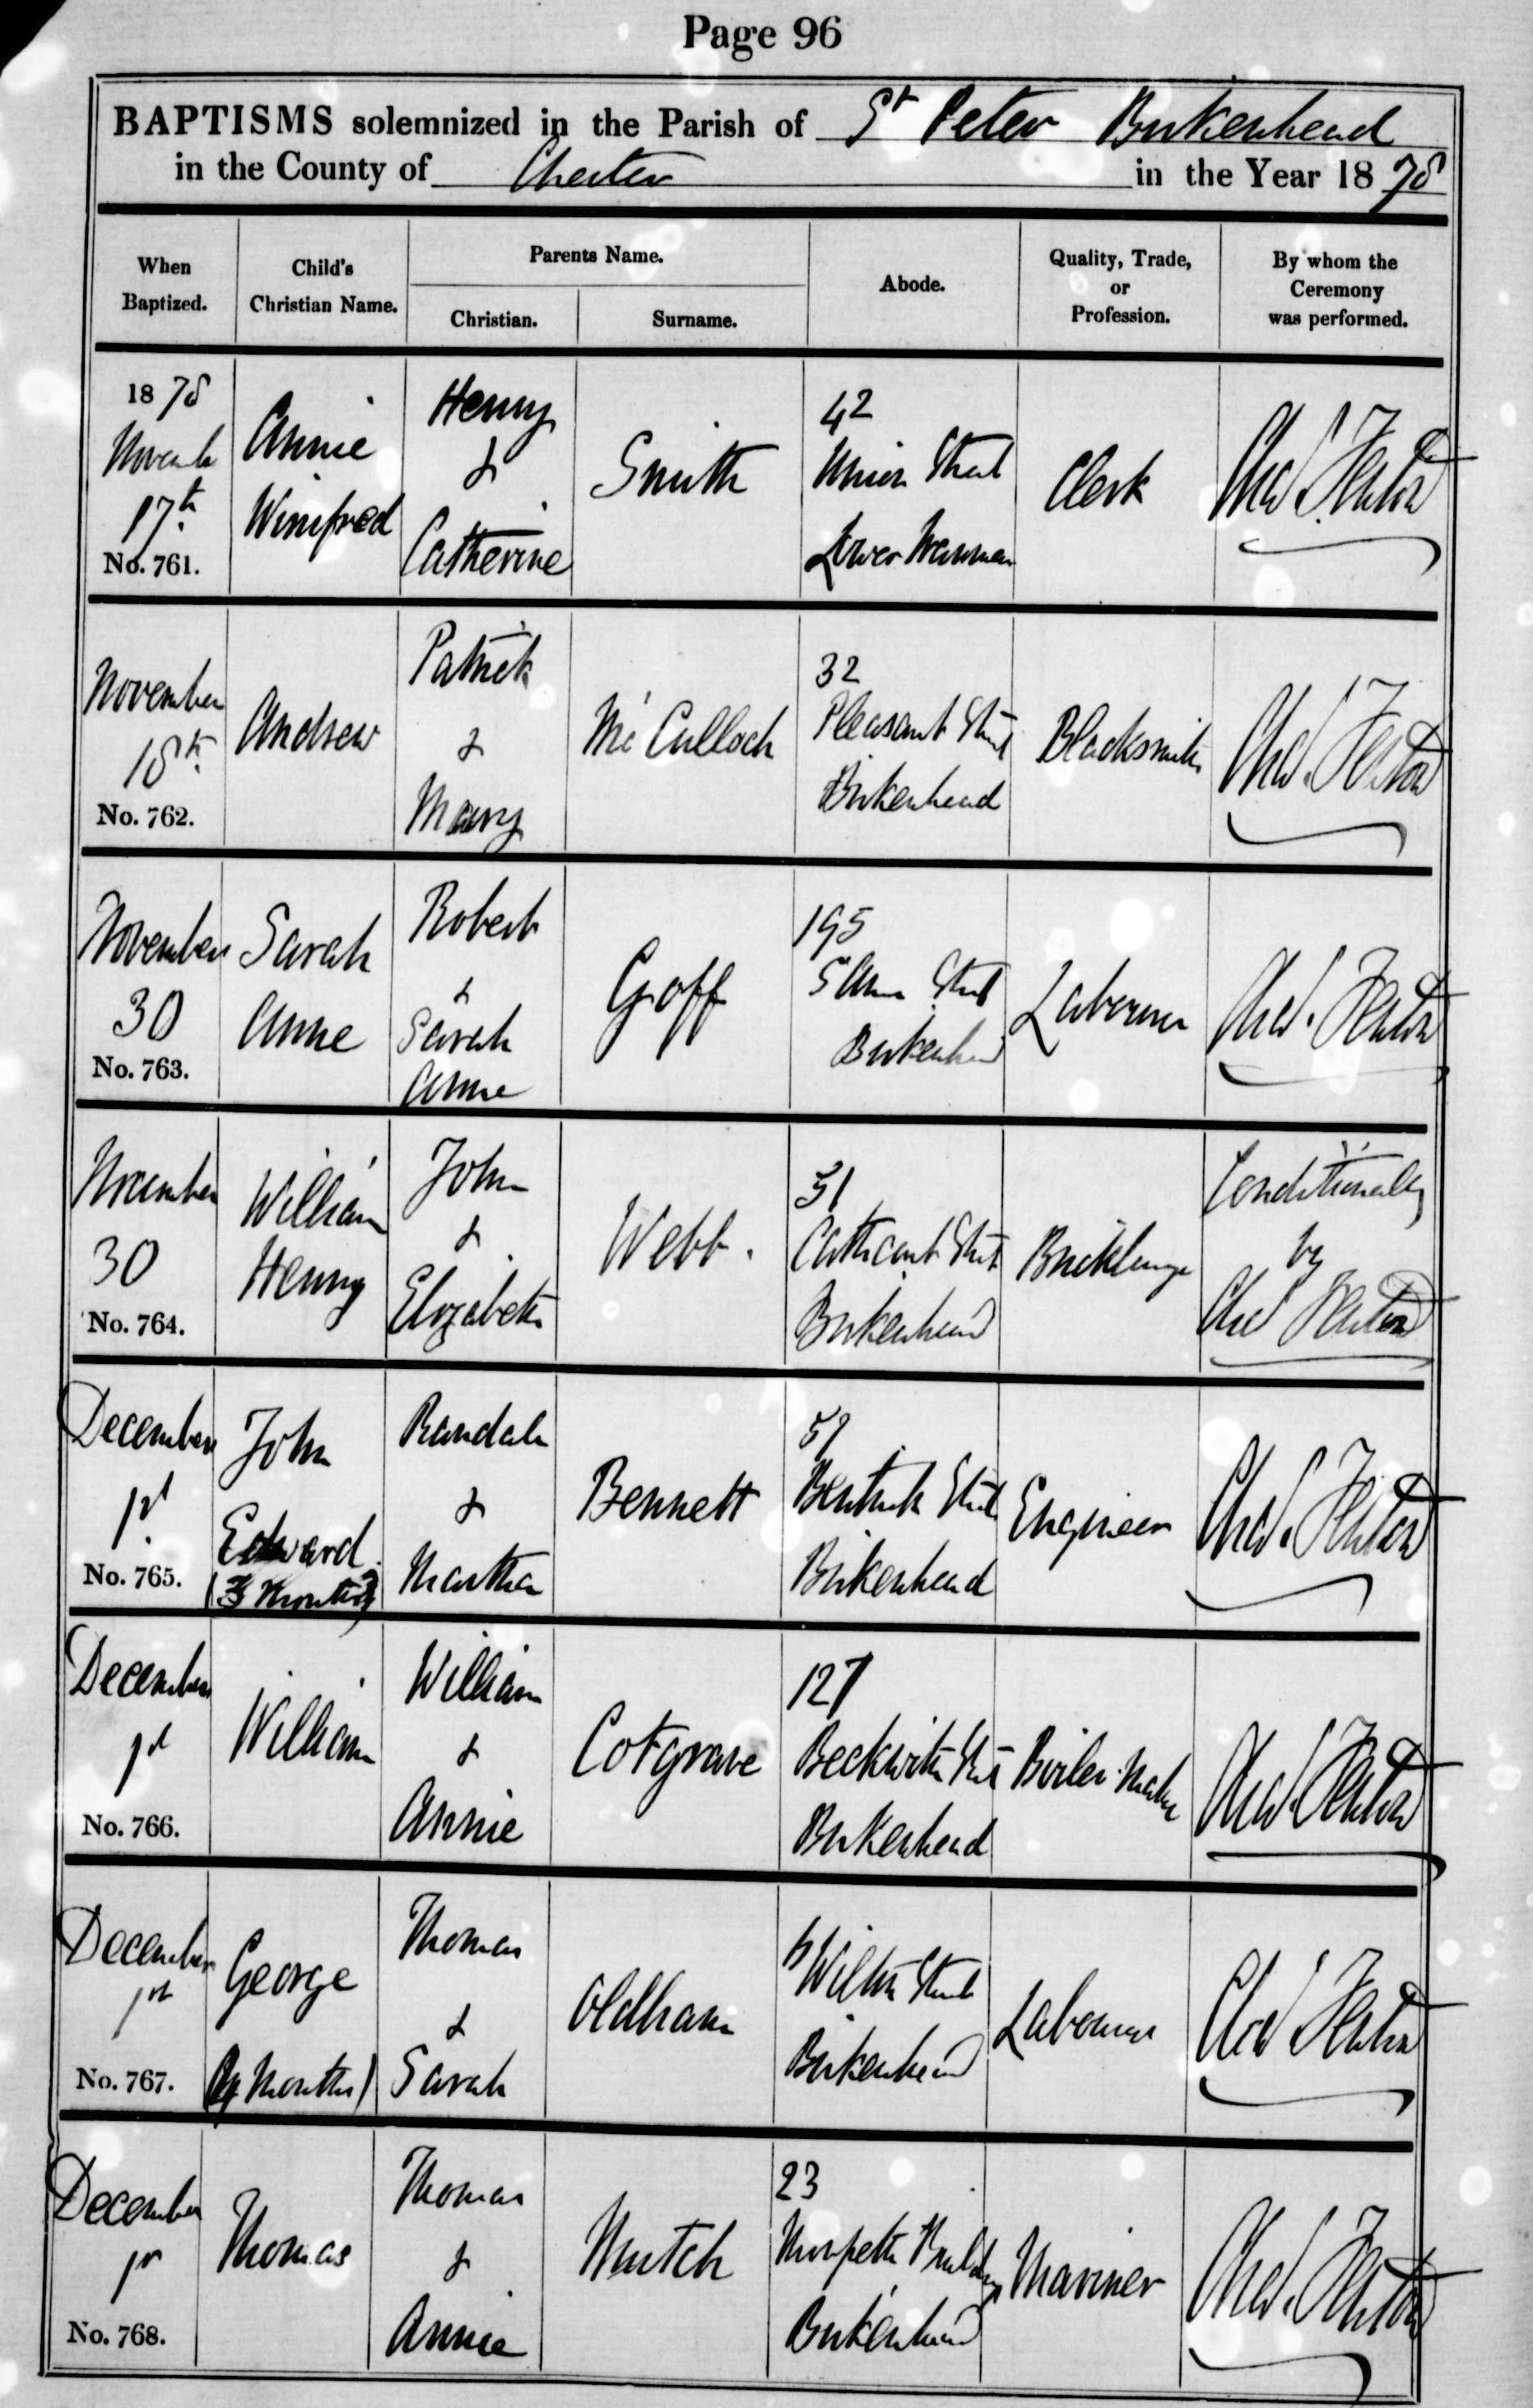 Page 96
BAPTISMS solemnized in the Parish of St Peter Birkenhead
in the County of Chester in the Year 1878
When Baptized.
Child's Christian Name.
Parents Name.
Christian.
Surname.
Abode.
Quality, Trade, or Profession.
By whom the Ceremony was performed.
1878
Novemb
17th
No. 761.
Annie
Winifred
Henry
&
Catherine
Smith
42
Union Street
Clerk
Chas. Fenton
November
18th
No. 762.
Andrew
Patrick
&
Mary
Mc Culloch
32
Pleasant Street
Birkenhead
Blacksmith
Chas. Fenton
November
30
No. 763.
Sarah
Anne
Robert
&
Sarah
Anne
Goff
195
St Anne Street
Birkenhead
Labourer
Chas. Fenton
November
30
No. 764.
William
Henry
John
&
Elizabeth
Webb.
51
Cathcart Street
Birkenhead
Bricklayer
Conditionally
by
Chas Fenton
December
1st
No. 765.
John
Edward
(3 Months)
Randall
&
Martha
Bennett
Street
Birkenhead
Engineer
Chas. Fenton
December
1st
No. 766.
William
William
&
Annie
Cotgrave
127
Beckwith Street
Birkenhead
Boiler Maker
Chas. Fenton
December
1st
No. 767.
George
Months)
Thomas
&
Sarah
Oldham
Street
Birkenhead
Labourer
Chas Fenton
December
1st
No. 768.
Thomas
Thomas
&
Annie
Mutch
23
Morpeth Buildings
Birkenhead
Mariner
Chas. Fenton